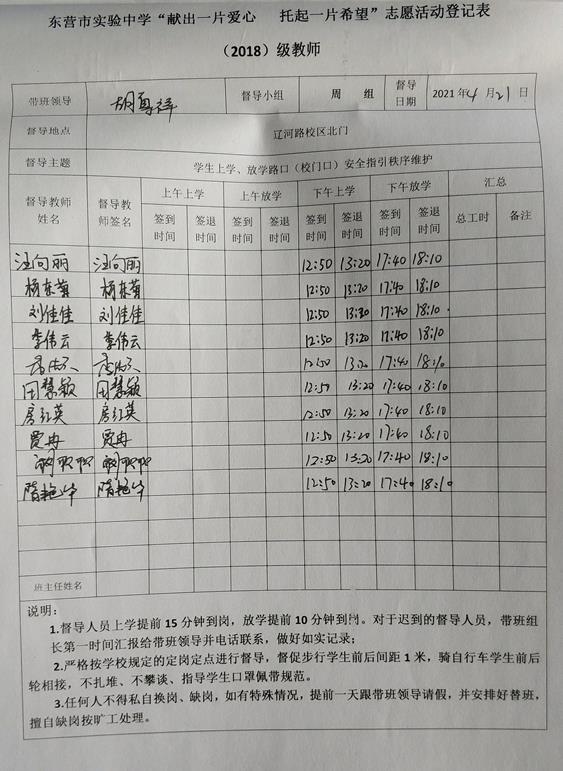 东营市实验中学“献出一片爱心 托起一片希望”志愿活动登记表
(2018)级教师
带班领导 胡 祥 督导小组 周 组 督导日期 2021年4月21日
督导地点 辽河路校区北门
督导主题 学生上学、放学路口(校门口)安全指引秩序维护
督导教师姓名 督导教师签名 上午上学 上午放学 下午上学 下午放学 汇总
签到时间 签退时间 签到时间 签退时间 签到时间 签退时间 签到时间 签退时间 总工时 备注
汪向丽 汪向丽 12:50 13:20 17:40 18:10
杨东菊 杨东菊 12:50 13:20 17:40 18:10
刘佳佳 刘佳佳 12:50 13:20 17:40 18:10
李伟云 李伟云 12:50 13:20 17:40 18:10
12:50 13:20 17:40 18:10
田慧颖 田慧颖 12:50 13:20 17:40 18:10
房红英 房红英 12:50 13:20 17:40 18:10
贾冉 贾冉 12:50 13:20 17:40 18:10
12:50 13:20 17:40 18:10
隋艳华 隋艳华 12:50 13:20 17:40 18:10
班主任姓名
说明:
1.督导人员上学提前15分钟到岗,放学提前10分钟到岗。对于迟到的督导人员,带班组
长第一时间汇报给带班领导并电话联系,做好如实记录;
2.严格按学校规定的定岗定点进行督导,督促步行学生前后间距1米,骑自行车学生前后
轮相接,不扎堆、不攀谈、指导学生口罩佩带规范。
3.任何人不得私自换岗、缺岗,如有特殊情况,提前一天跟带班领导请假,并安排好替班,
擅自缺岗按旷工处理。